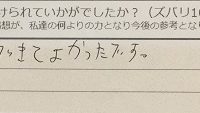 けられていかがでしたか？（ズバリ10
想が、私達の何よりの力となり今後の参考となり
きてよかったです。